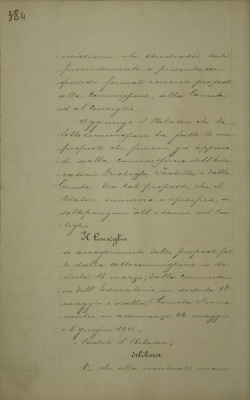 384
missione che studiasse tali
provvedimenti e presentasse
quindi formali concrete proposte
alla Commissione, alla Giunta
ed al Consiglio.
Aggiunge il Relatore che la
Sottocommissione ha fatto le sue
proposte che furono già approva
te dalla commissione dell'Edu
catorio e dalla
Giunta. Ora tali proposte, che il
Relatore enumera e specifica, si
sottopongono all'esame del Con
siglio.
Il Consiglio
in accoglimento delle proposte fat
te dalla sottocommissione in se
duta 18 marzo, dalla commissio
ne dell'Educatorio in seduta 18
maggio e dalla Giunta
in adunanze 22 maggio
e 6 giugno 1911.
Sentito il Relatore,
delibera
1°. che alla